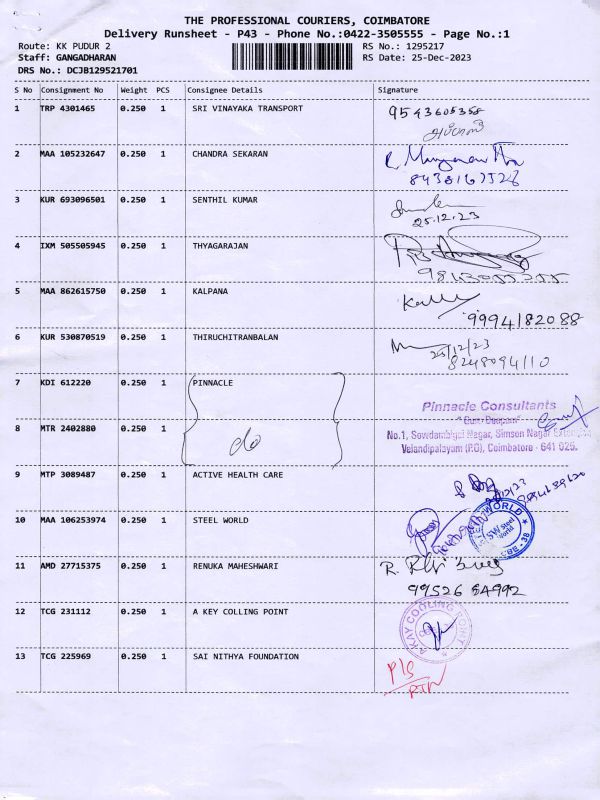 THE PROFESSIONAL COURIERS, COIMBATORE
Delivery Runsheet - P43 - Phone No.:0422-3505555 - Page No.:1
Route: KK PUDUR 2 RS No.: 1295217
Staff: GANGADHARAN RS Date: 25-Dec-2023
DRS No.: DCJB129521701
S No Consignment No Weight PCS Consignee Details Signature
1 TRP 4301465 0.250 1 SRI VINAYAKA TRANSPORT 9543605358
2 MAA 105232647 0.250 1 CHANDRA SEKARAN
3 KUR 693096501 0.250 1 SENTHIL KUMAR
25.12.23
4 IXM 505505945 0.250 1 THYAGARAJAN
5 MAA 862615750 0.250 1 KALPANA
9994182088
6 KUR 530870519 0.250 1 THIRUCHITRANBALAN
25/12/23
8248094110
7 KDI 612220 0.250 1 PINNACLE
Pinnacle Consultants
8 MTR 2402880 0.250 1 do
No.1, Sowdambigai Nagar, Simson Nagar
Velandipalayam (P.O), Coimbatore - 641 025.
9 MTP 3089487 0.250 1 ACTIVE HEALTH CARE
10 MAA 106253974 0.250 1 STEEL WORLD
SW Steel World
CBE-38
11 AMD 27715375 0.250 1 RENUKA MAHESHWARI
99526 84992
12 TCG 231112 0.250 1 A KEY COLLING POINT
A KAY COOLING POINT
13 TCG 225969 0.250 1 SAI NITHYA FOUNDATION
P/S
RTN